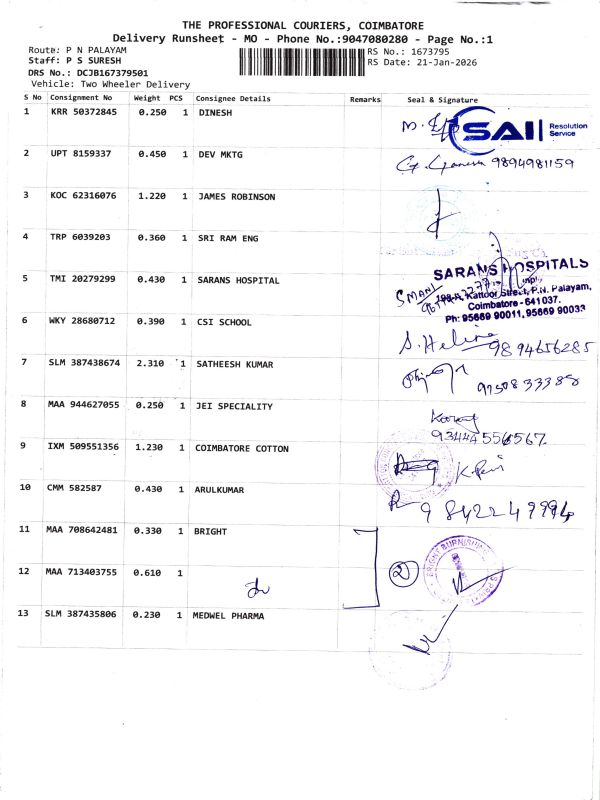 THE PROFESSIONAL COURIERS, COIMBATORE
Delivery Runsheet - MO - Phone No.:9047080280 - Page No.:1
Route: P N PALAYAM
RS No.: 1673795
Staff: P S SURESH
RS Date: 21-Jan-2026
DRS No.: DCJB167379501
Vehicle: Two Wheeler Delivery
S No Consignment No Weight PCS Consignee Details Remarks Seal & Signature
1 KRR 50372845 0.250 1 DINESH
SAI Resolution
Service
2 UPT 8159337 0.450 1 DEV MKTG
9894981159
3 KOC 62316076 1.220 1 JAMES ROBINSON
4 TRP 6039203 0.360 1 SRI RAM ENG
SARANS HOSPITALS
5 TMI 20279299 0.430 1 SARANS HOSPITAL
SMANI
198-A, Kattoor Street, P.N. Palayam,
Coimbatore - 641037.
Ph: 95669 90011, 95669 90033
6 WKY 28680712 0.390 1 CSI SCHOOL
S. Helina
9894656285
7 SLM 387438674 2.310 1 SATHEESH KUMAR
8 MAA 944627055 0.250 1 JEI SPECIALITY
9344556567.
9 IXM 509551356 1.230 1 COIMBATORE COTTON
10 CMM 582587 0.430 1 ARULKUMAR
9842247994
11 MAA 708642481 0.330 1 BRIGHT
BRIGHT BURNISHING
12 MAA 713403755 0.610 1
2
13 SLM 387435806 0.230 1 MEDWEL PHARMA